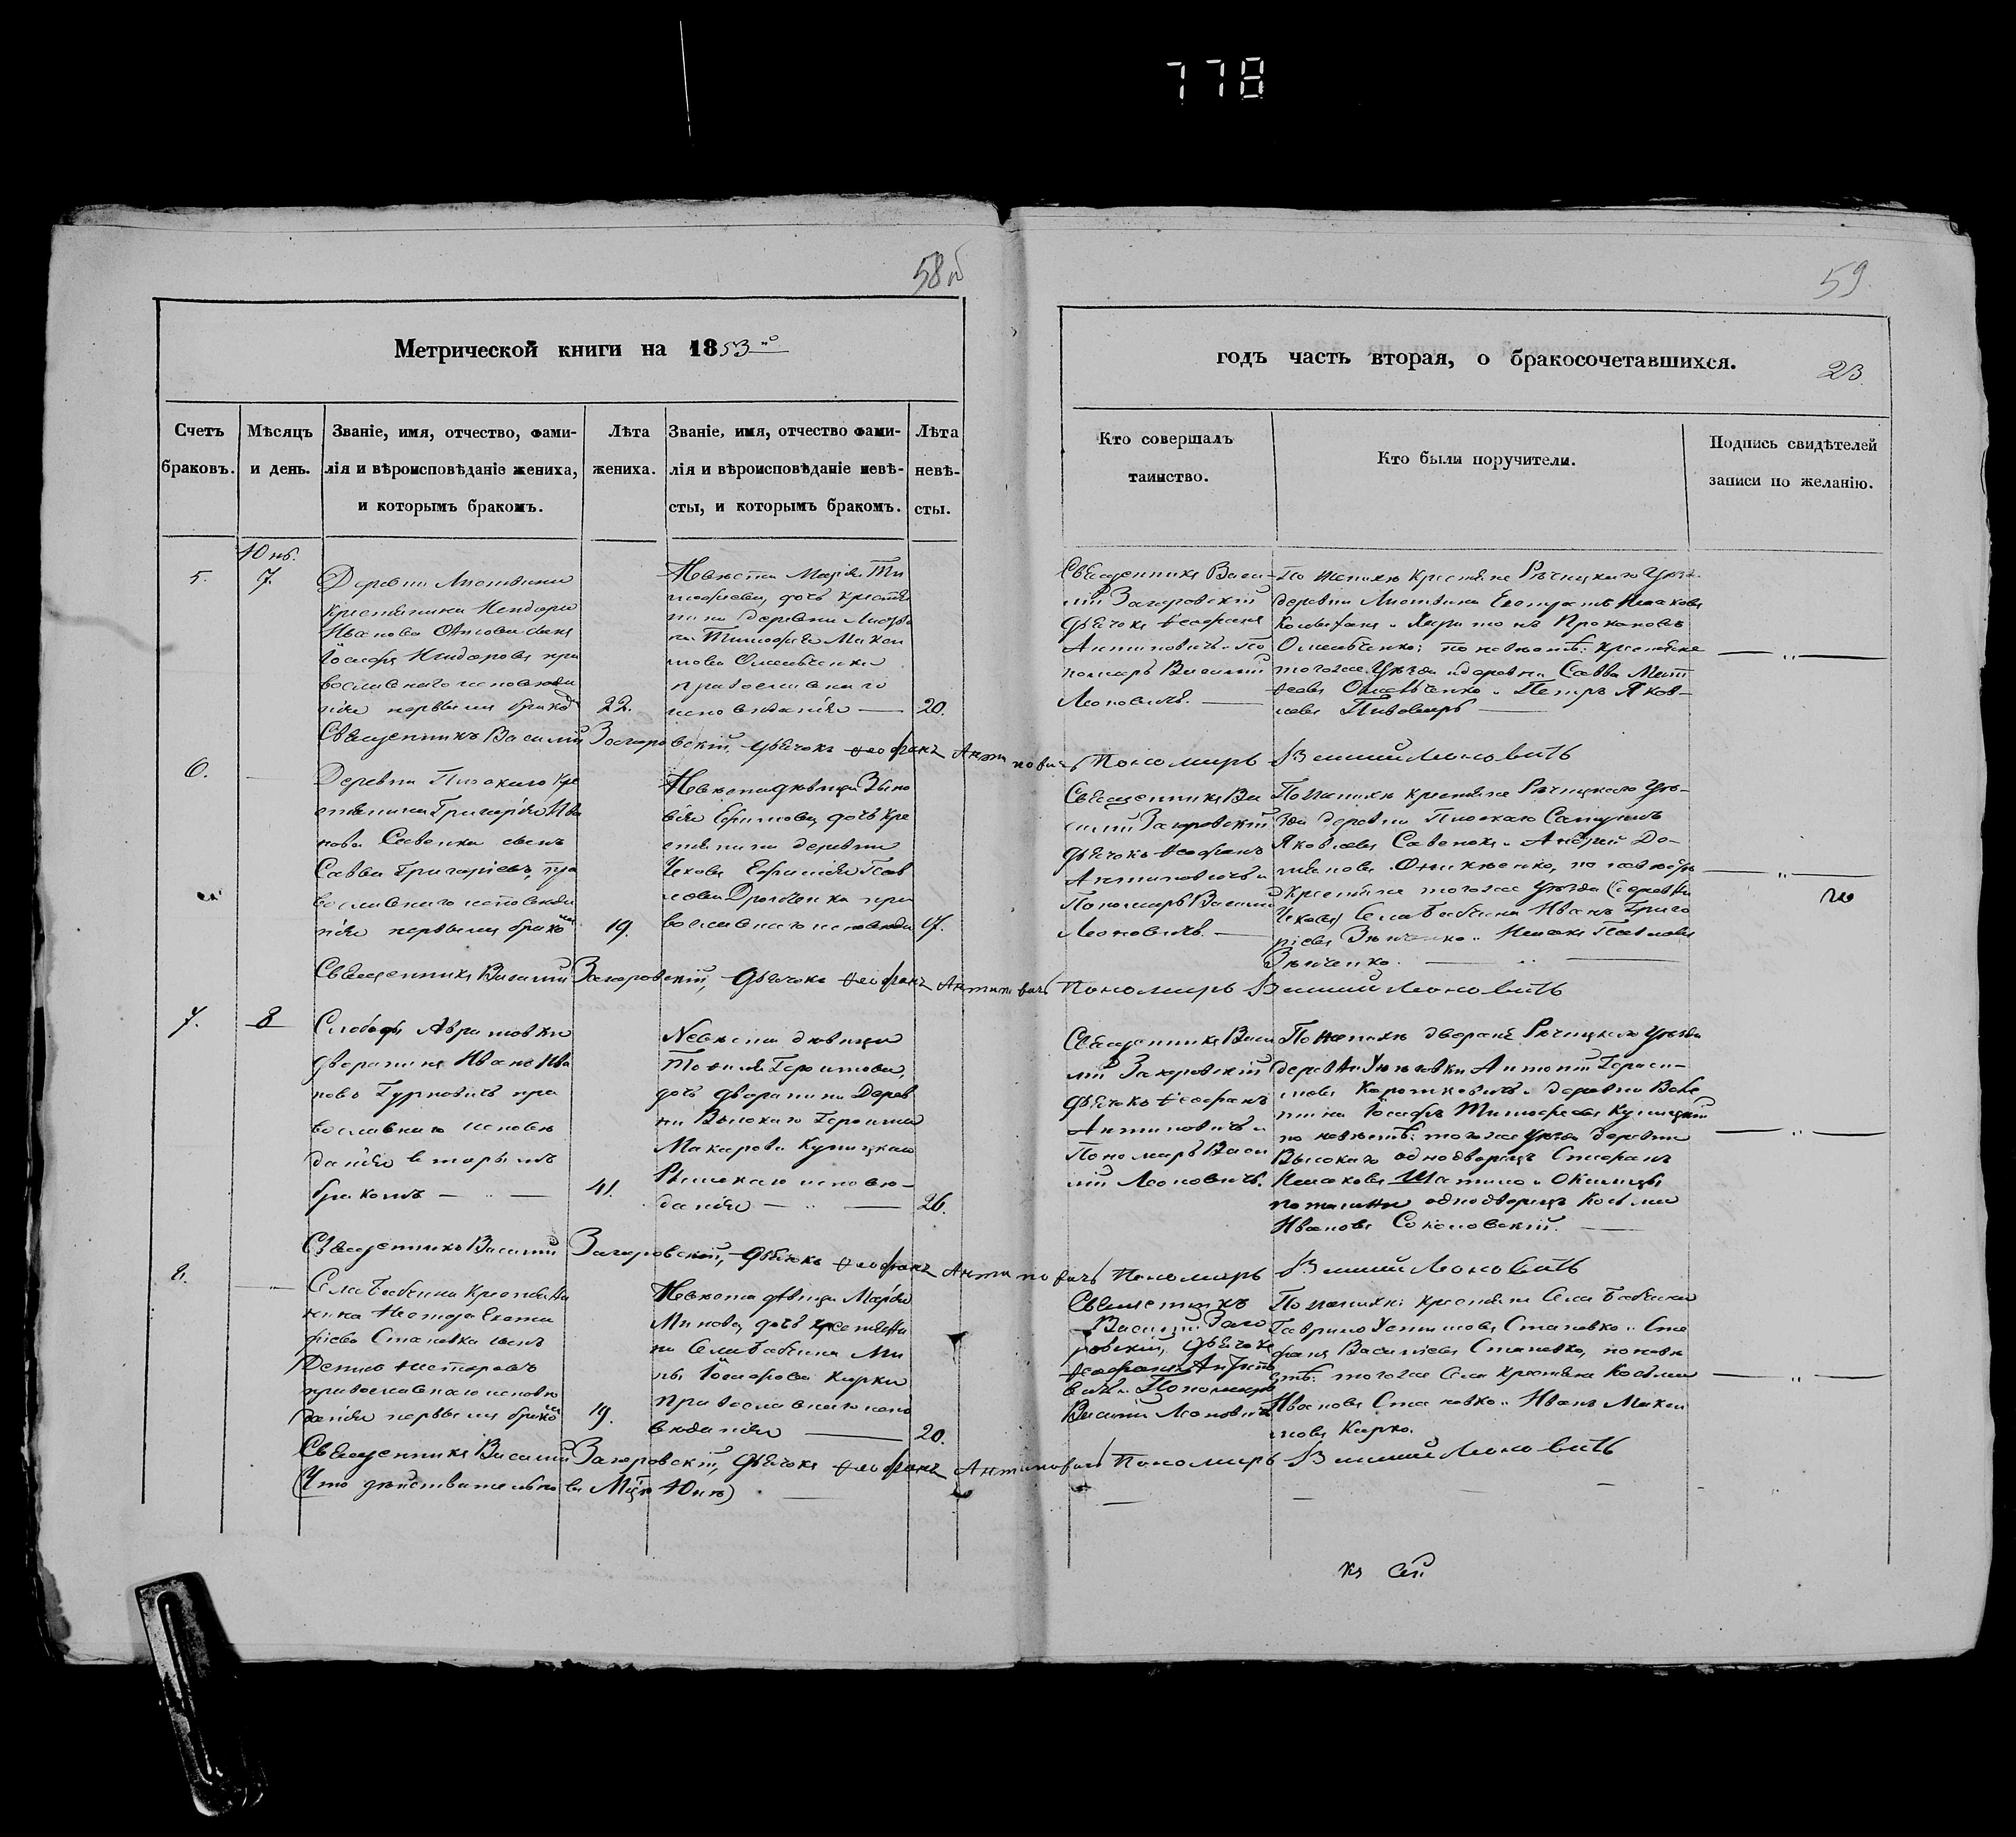 778
58об
59
Метрической книги на 1853го
годъ часть вторая, о бракосочетавшихся.
23.
Счетъ браковъ.
Мѣсяцъ и день.
Званіе, имя, отчество, фами-
лія и вѣроисповѣданіе жениха,
и которымъ бракомъ.
Лѣта жениха.
Званіе, имя, отчество фами-
лія и вѣроисповѣданіе невѣ-
сты, и которымъ бракомъ.
Лѣта невѣ-
сты.
Кто совершалъ
таинство.
Кто были поручители.
Подпись свидѣтелей
записи по желанію.
5.
7.
Деревни
крестьянина
Иванова сынъ
Іосифъ пра
вославнаго исповѣда
нія первымъ брако
22.
Невѣста Марія Ти
моѳеева, дочь крестья
нина деревни
Тимоѳея Макси
мова Омельченки
православнаго
исповѣданія
20.
Священникъ Васи-
лій Загоровскій
дьячокъ Ѳеофанъ
Антиновичъ и по
номарь Василій
Леоновичъ.
По женихѣ крестьяне Рѣчицкаго уѣзда
деревни Исаковъ
и Прокоповъ
Омельченко; по невѣстѣ: крестьяне
тогоже уѣзда и деревни Савва Мат
ѳеевъ Омельченко и Петръ Яков-
левъ Пивоваръ
Священникъ Василій Загоровскій, дьячокъ Ѳеофанъ Антиновичъ Пономарь Василій Леоновичъ
6.
Деревни кре
стьянина Григорія Ива
нова Савенка сынъ
Савва Григоріевъ, пра
вославнаго исповѣда
нія первымъ брако
19.
Невѣста дѣвица Зѣно
вія Ефимова, дочь кре
стьянина деревни
Чехова Ефимія Пав
лова пра
вославнаго исповѣда
17.
Священникъ Ва
силій Загоровскій
дьячокъ Ѳеофанъ
Антиновичъ и
Пономарь Василій
Леоновичъ.
По женихѣ крестьяне Рѣчицкаго уѣ-
зда деревни
Яковлевъ Савенокъ и Андрей До-
по невѣстѣ
крестьяне тогоже уѣзда (деревни
Чехова) села Бабчина Иванъ Григо
ріевъ Зѣнченко и Исакъ Павловъ
Зѣнченко.
Священникъ Василій Загоровскій, дьячокъ Ѳеофанъ Антиновичъ Пономарь Василій Леоновичъ
7.
8
Слободы Аврамовки
дворянинъ Иванъ Ива
новъ Гурновичъ пра
вославнаго исповѣ
данія вторымъ
бракомъ
41.
Невѣста дѣвица
Герасимова,
дочь дворянина Дерев
ни Высокаго Герасима
Макарова Купицкаго
Римскаго исповѣ-
данія
26.
Священникъ Васи
лій Загоровскій
дьячокъ Ѳеофанъ
Антиновичъ и
Пономарь Васи
лій Леоновичъ.
По женихѣ дворяне Рѣчицкаго уѣзда
деревни Антоній Гераси-
мовъ Короткевичъ и деревни
Іосифъ Тимоѳеевъ Купицкій
по невѣстѣ: тогоже уѣзда деревни
Высокаго однодворецъ Стефанъ
Исаковъ Шатило и Околицы
однодворецъ Косьма
Ивановъ Соколовскій.
Священникъ Василій Загоровскій, дьячокъ Ѳеофанъ Антиновичъ Пономарь Василій Леоновичъ
8.
Села Бабчина крестьяни
нина Нестора
Становка сынъ
Несторовъ
православнаго исповѣ
данія первымъ брако
19.
Невѣста дѣвица Марія
Минова, дочь крестьяни
на села Бабчина Ми
ны Іосифова Кирки
православнаго испо
вѣданія
20.
Священникъ
Василій Заго
ровскій, дьячокъ
Ѳеофанъ Антино
вичъ и Пономарь
Василій Леоновичъ
По женихѣ: крестьяне села Бабчина
Гаврило Устиновъ Становко и Сте
фанъ Василіевъ Становко, по невѣ
стѣ: тогоже села крестьяне Косьма
Ивановъ Становко и Иванъ Макси
мовъ Кирко.
Священникъ Василій Загоровскій, дьячокъ Ѳеофанъ Антиновичъ Пономарь Василій Леоновичъ
(Что дѣйствительно